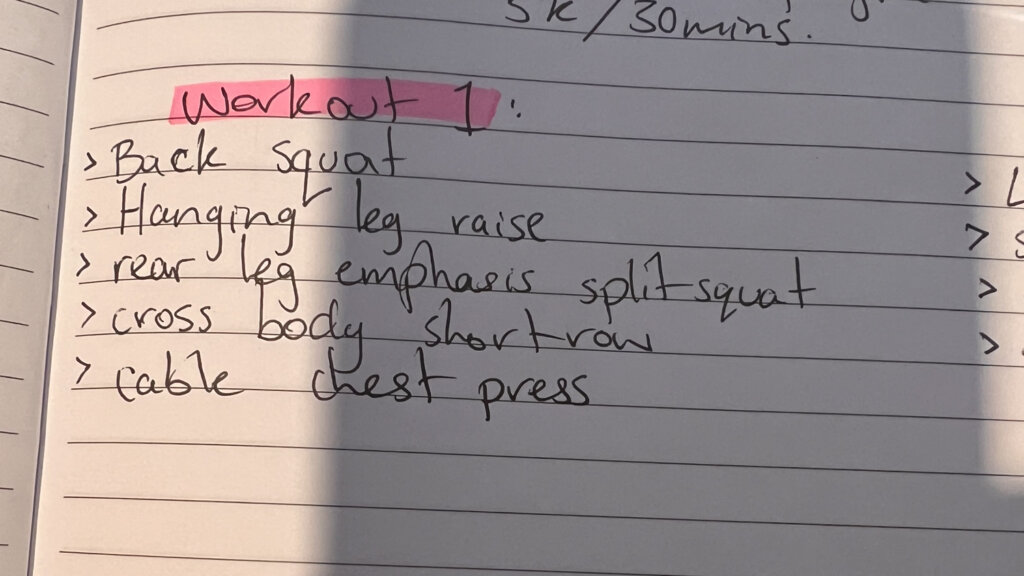 5k/30mins.
Workout 1:
> Back squat
> Hanging leg raise
> rear leg emphasis split squat
> cross body short row
> cable chest press
>
>
>
>